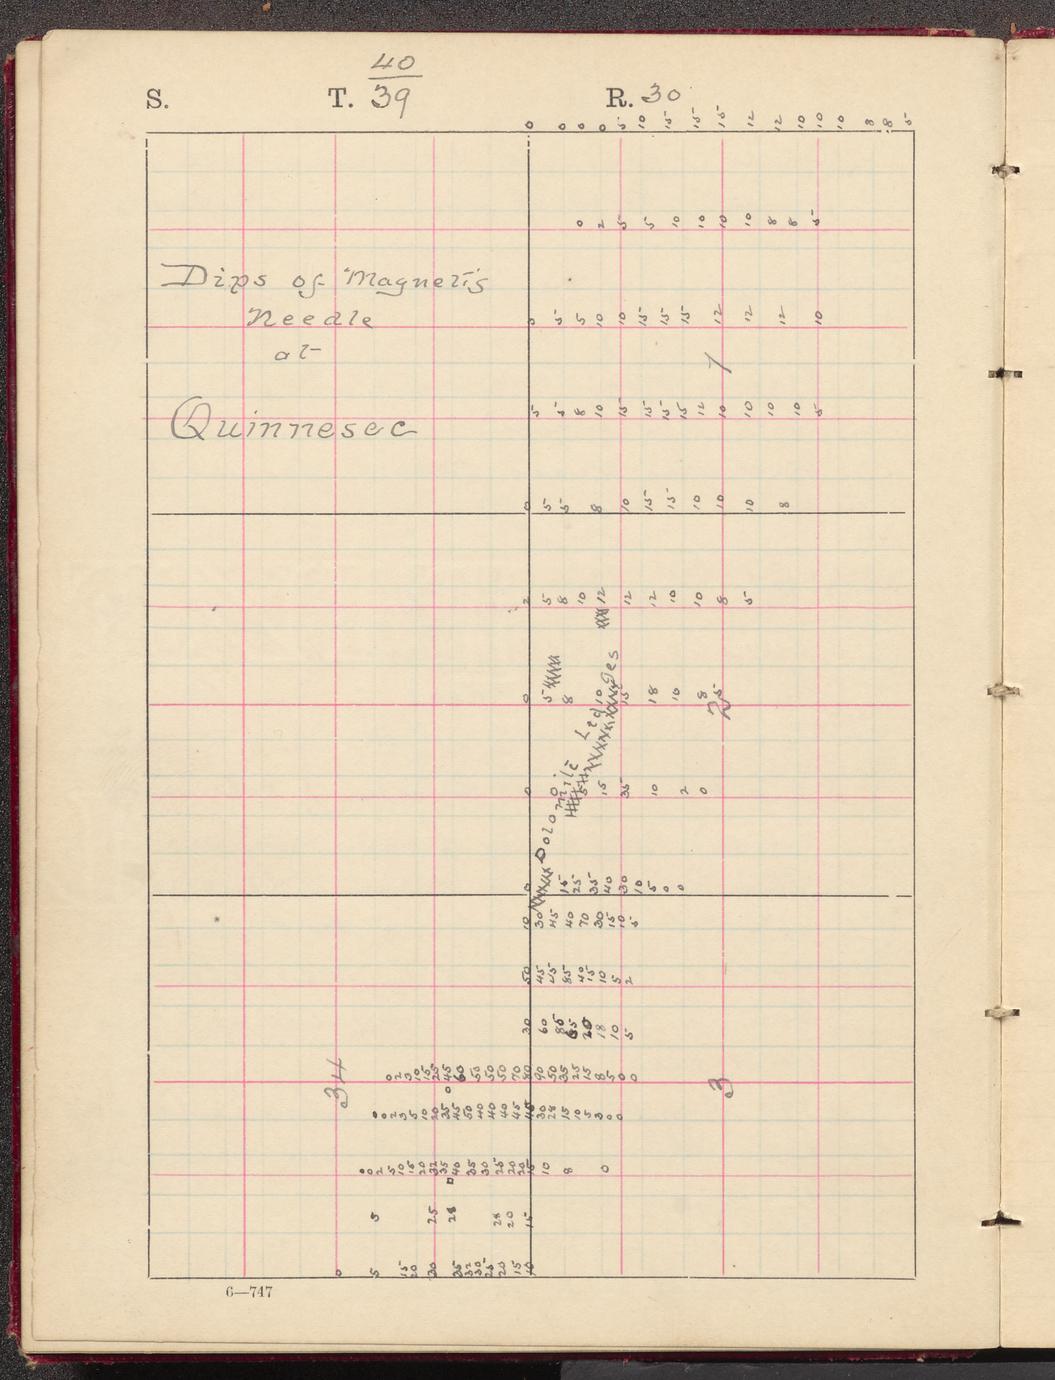 40
S. T. 39 R. 30
0 0 0 0 5 10 15 15 15 12 12 10 10 10 8 8 5
0 2 5 5 10 10 10 10 8 8 5
Dips of Magnetis
Needle
5 5 10 10 15 15 15 12 12 12 10
at
1
5 5 8 10 15 15 15 15 12 10 10 10 10 5
Quinnesec
0 5 5 8 10 15 15 10 10 10 8
2 5 8 10 12 12 12 10 10 8 5
0 5 8 10 15 18 10 8 5
2
Dolomite Ledges
0 0 15 35 10 2 0
0 15 25 35 40 30 10 5 0 0
10 30 45 40 70 30 15 10 5
50 45 45 85 40 15 10 5 2
30 60 85 65 20 18 10 5
34
0 2 3 10 15 25 45 60 50 50 50 70 80 90 50 35 25 15 8 5 0 0
3
0 0 2 3 5 10 20 35 45 50 40 40 40 45 45 30 28 15 10 5 3 0 0
0 0 2 5 10 15 20 32 35 40 35 30 25 20 20 15 10 8 0
5 25 28 28 20 15
0 5 15 20 30 35 32 30 25 20 15 10
6—747